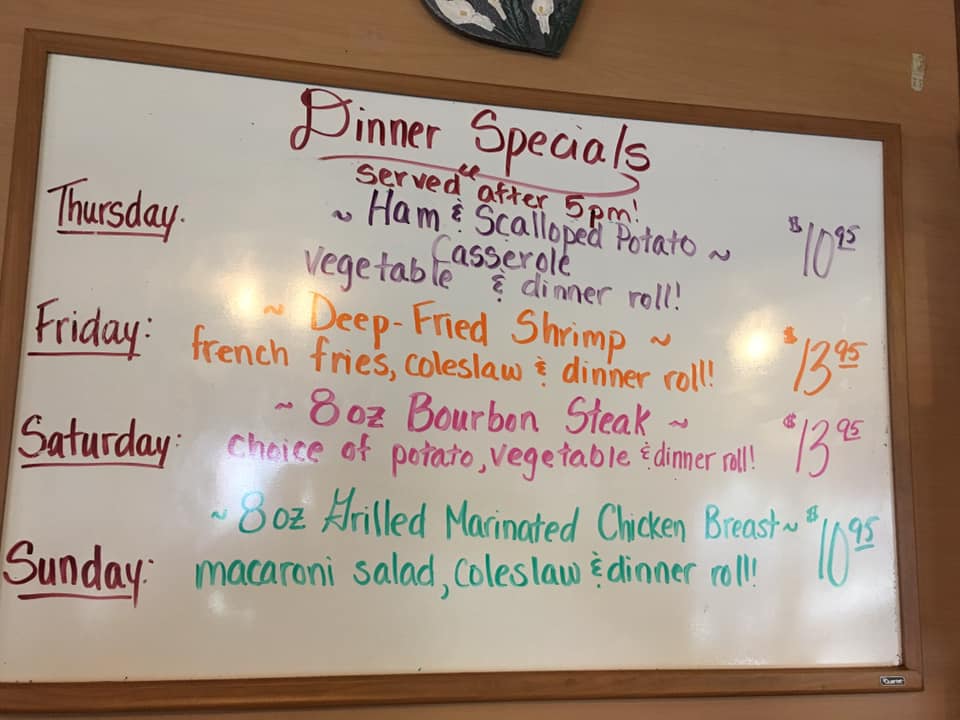 Dinner Specials
served after 5pm!
Thursday.
~ Ham & Scalloped Potato ~
Casserole
$10.95
vegetable & dinner roll!
Friday:
~ Deep-Fried Shrimp ~
$13.95
french fries, coleslaw & dinner roll!
Saturday:
~ 8oz Bourbon Steak ~
$13.95
choice of potato, vegetable & dinner roll!
~ 8oz Grilled Marinated Chicken Breast ~ $10.95
Sunday:
macaroni salad, coleslaw & dinner roll!
Quartet